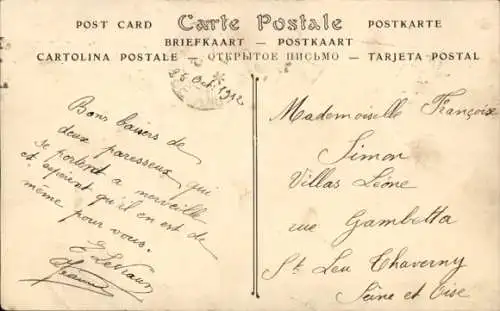 POST CARD Carte Postale POSTKARTE
BRIEFKAART — POSTKAART
CARTOLINA POSTALE — ОТКРЫТОЕ ПИСЬМО — TARJETA POSTAL
Oct. 1912
Bons baisers de
deux paresseux qui
se portent a merveille
et espèrent qu'il en est de
même pour vous.
Mademoiselle Françoise
Simon
Villas Léone
rue Gambetta
St Leu Thaverny
Seine et Oise